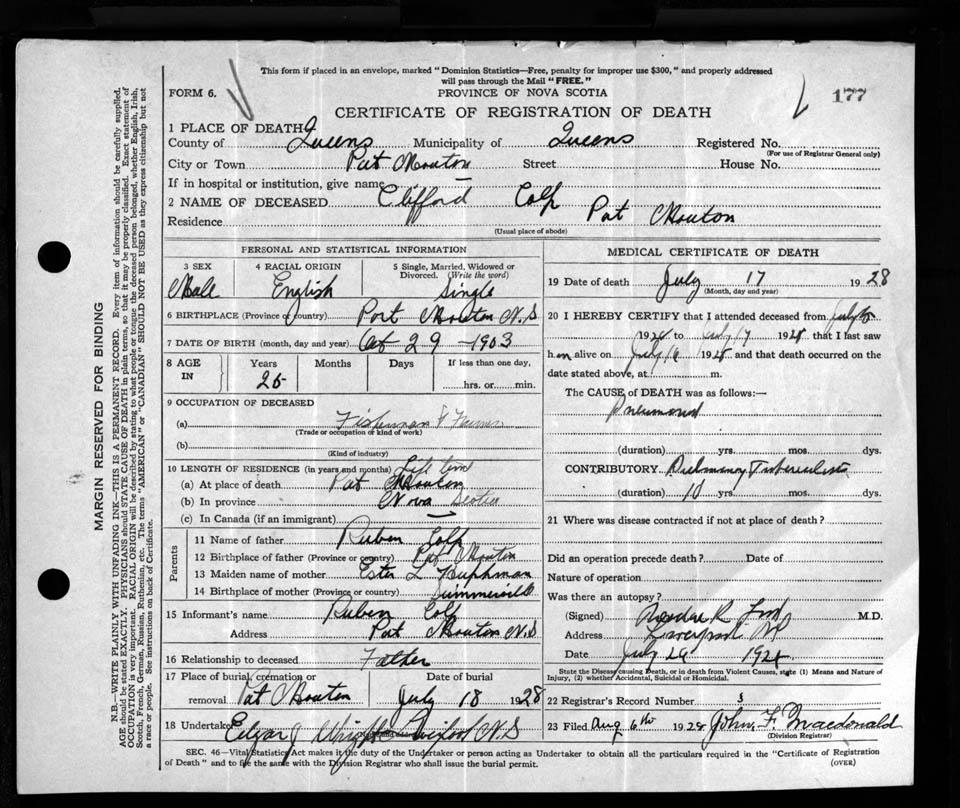 This form if placed in an envelope, marked "Dominion Statistics—Free, penalty for improper use $300," and properly addressed
will pass through the Mail "FREE."
FORM 6.
PROVINCE OF NOVA SCOTIA
177
CERTIFICATE OF REGISTRATION OF DEATH
1 PLACE OF DEATH
County of Queens Municipality of Queens Registered No.
(For use of Registrar General only)
City or Town Port Mouton Street House No.
If in hospital or institution, give name
2 NAME OF DECEASED Clifford Colp
Residence Port Mouton
(Usual place of abode)
PERSONAL AND STATISTICAL INFORMATION
3 SEX
Male
4 RACIAL ORIGIN
English
5 Single, Married, Widowed or
Divorced. (Write the word)
Single
6 BIRTHPLACE (Province or country) Port Mouton N.S
7 DATE OF BIRTH (month, day and year) Oct 29 1903
8 AGE
IN
Years
25
Months
Days
If less than one day,
hrs. or min.
9 OCCUPATION OF DECEASED
(a) Fisherman &
(Trade or occupation or kind of work)
(b)
(Kind of industry)
10 LENGTH OF RESIDENCE (in years and months) Life time
(a) At place of death Port Mouton
(b) In province Nova Scotia
(c) In Canada (if an immigrant)
Parents
11 Name of father Ruben Colp
12 Birthplace of father (Province or country) Port Mouton
13 Maiden name of mother Ester L
14 Birthplace of mother (Province or country) Summerville
15 Informant's name Ruben Colp
Address Port Mouton N.S
16 Relationship to deceased Father
17 Place of burial, cremation or
removal Port Mouton
Date of burial
July 18 1928
18 Undertaker Edgar J Wright N.S
and address
MEDICAL CERTIFICATE OF DEATH
19 Date of death July 17 1928
(Month, day and year)
20 I HEREBY CERTIFY that I attended deceased from July
1928 to July 17 1928 that I last saw
h im alive on July 16 1928 and that death occurred on the
date stated above, at m.
The CAUSE of DEATH was as follows:—
Pneumonia
(duration) yrs. mos. dys.
CONTRIBUTORY Pulmonary Tuberculosis
(duration) 10 yrs. mos. dys.
21 Where was disease contracted if not at place of death?
Did an operation precede death? Date of
Nature of operation
Was there an autopsy?
(Signed) M.D.
Address Liverpool NS
Date July 29 1928
State the Disease causing Death, or in death from Violent Causes, state (1) Means and Nature of
Injury, (2) whether Accidental, Suicidal or Homicidal.
22 Registrar's Record Number
23 Filed Aug 6th 1928 John F. Macdonald
(Division Registrar)
SEC. 46—Vital Statistics Act makes it the duty of the Undertaker or person acting as Undertaker to obtain all the particulars required in the "Certificate of Registration
of Death" and to file the same with the Division Registrar who shall issue the burial permit.
(OVER)
MARGIN RESERVED FOR BINDING
N.B.—WRITE PLAINLY WITH UNFADING INK—THIS IS A PERMANENT RECORD. Every item of information should be carefully supplied.
AGE should be stated EXACTLY. PHYSICIANS should STATE CAUSE OF DEATH in plain terms, so that it may be properly classified. Exact statement of
OCCUPATION is very important. RACIAL ORIGIN will be described by stating to what people or tongue the deceased person belonged, whether English, Irish,
Scotch, French, German, Russian, Ruthenian, etc. The terms "AMERICAN" or "CANADIAN" SHOULD NOT BE USED as they express citizenship but not
a race or people. See instructions on back of Certificate.